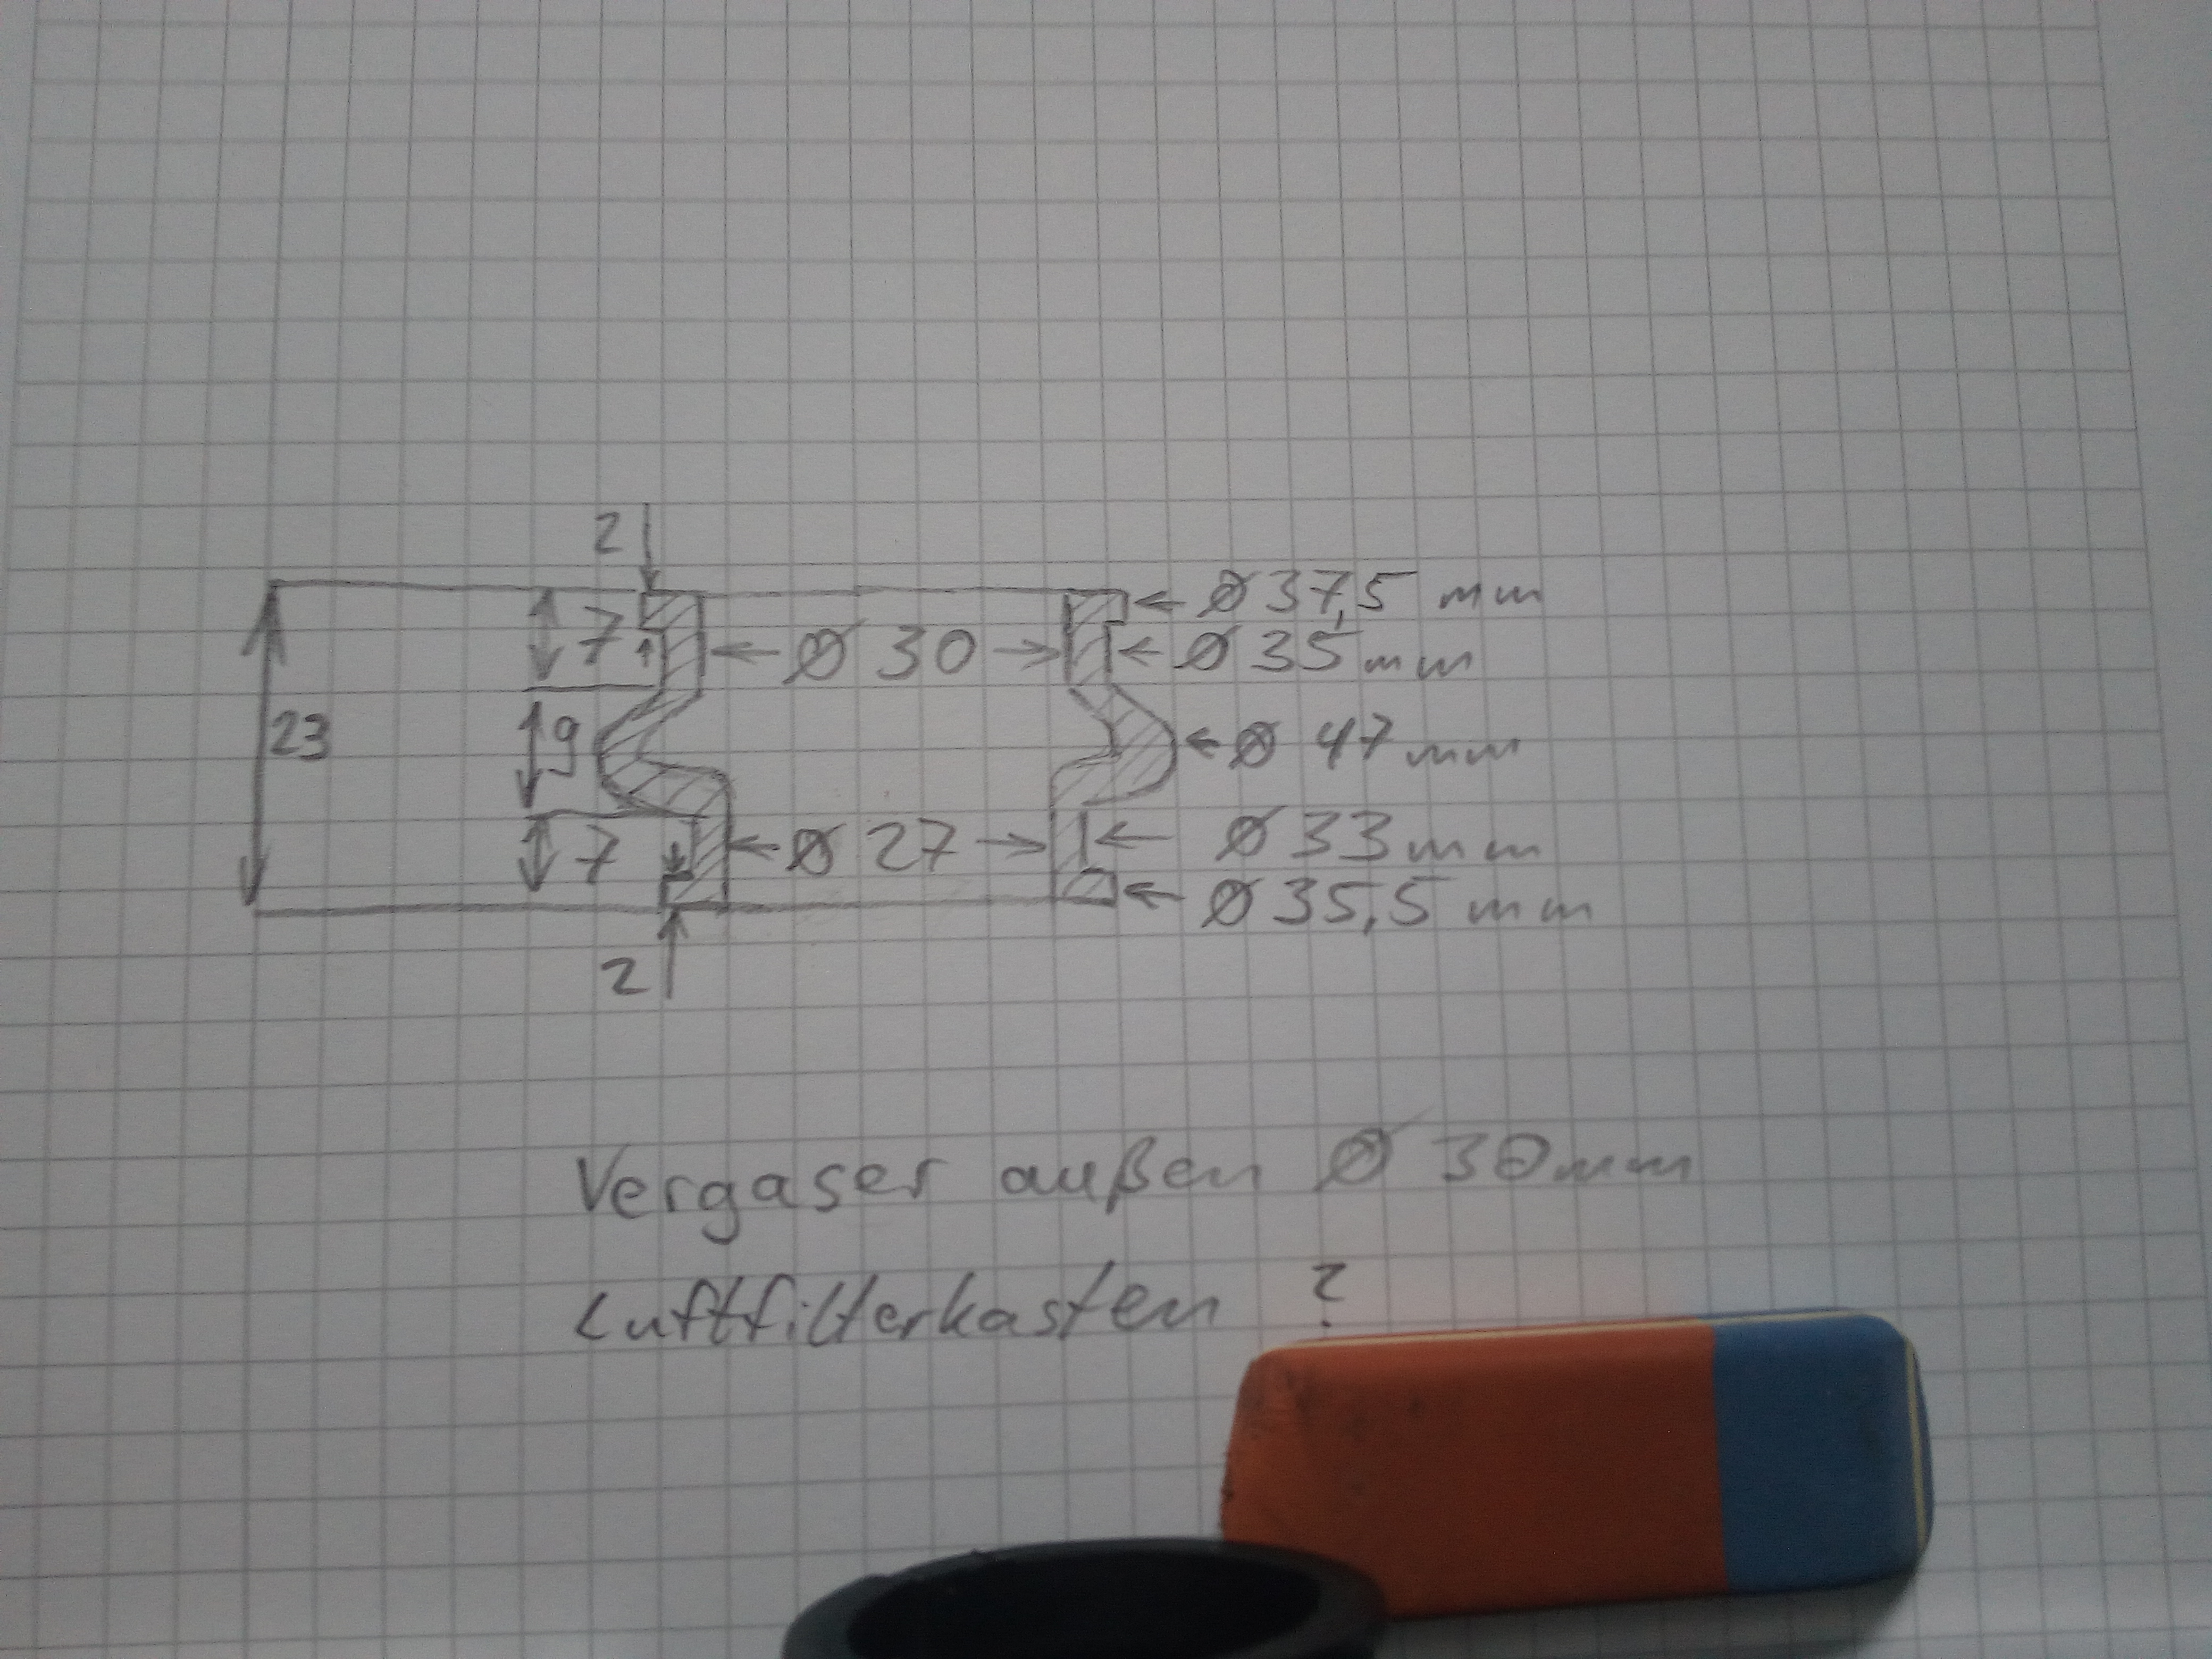 2
7 Ø 37,5 mm
Ø 30 Ø 35 mm
23 9 Ø 47 mm
7 Ø 27 Ø 33 mm
Ø 35,5 mm
2
Vergaser außen Ø 30 mm
Luftfilterkasten ?